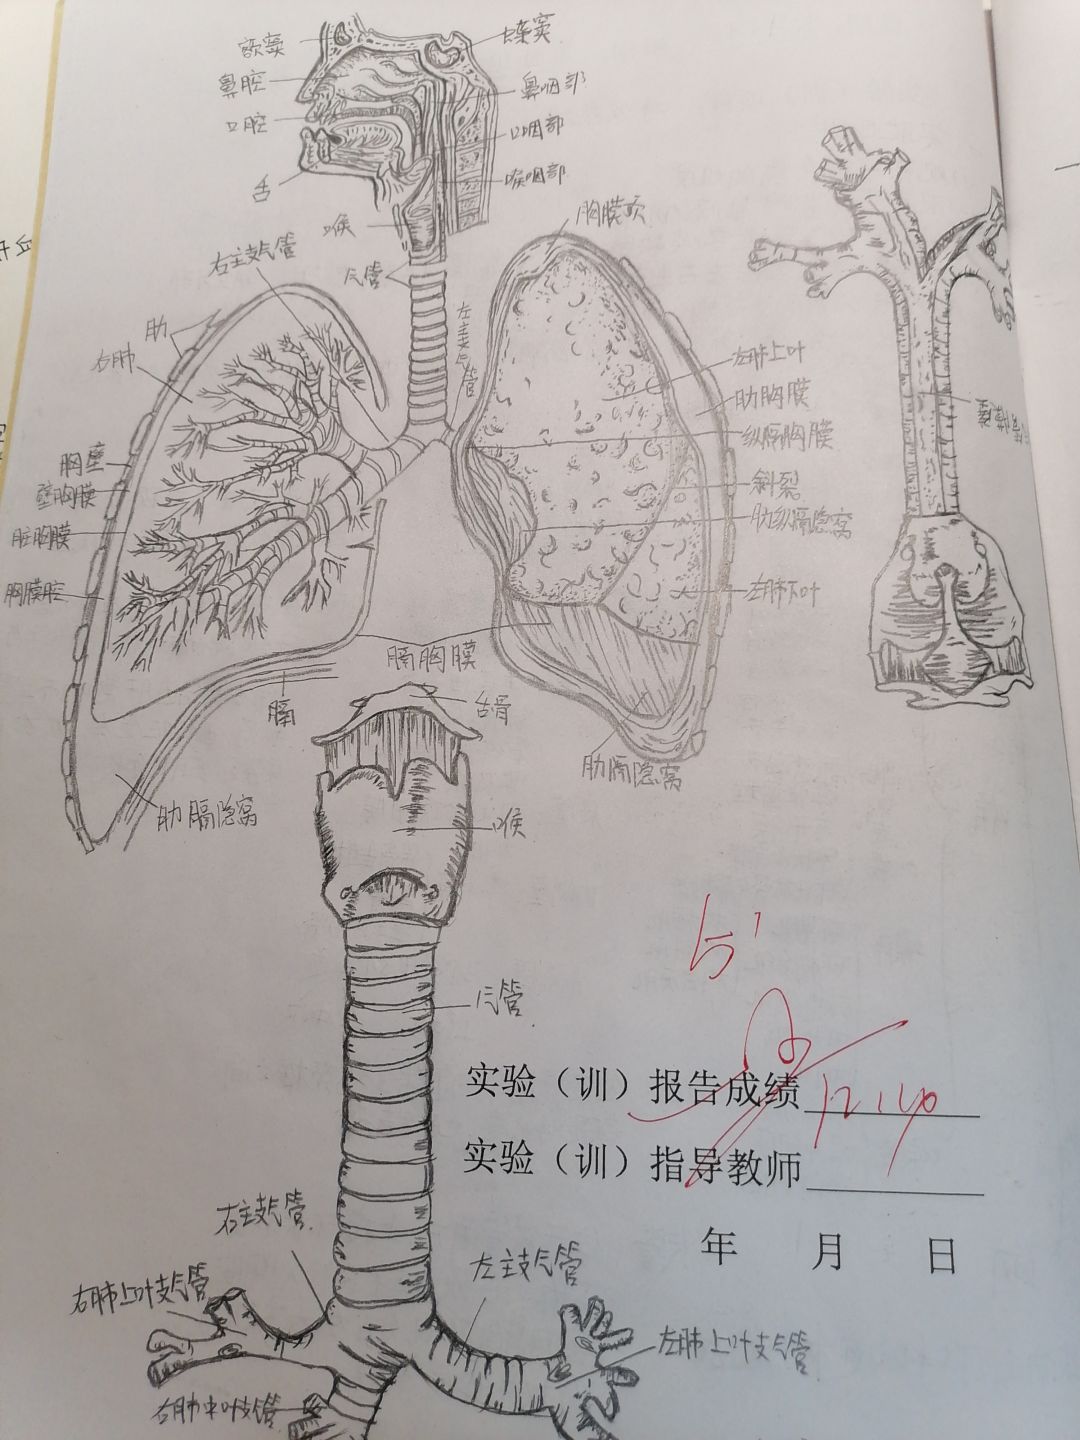 额窦
蝶窦
鼻腔
鼻咽部
口腔
口咽部
舌
喉咽部
喉
胸膜顶
右主支气管
气管
左主支气管
肋
右肺
左肺上叶
肋胸膜
纵隔胸膜
胸壁
壁胸膜
斜裂
脏胸膜
肋纵隔隐窝
胸膜腔
左肺下叶
膈胸膜
膈
舌骨
肋膈隐窝
肋膈隐窝
喉
气管
实验（训）报告成绩
实验（训）指导教师
年 月 日
右主支气管
左主支气管
右肺上叶支气管
左肺上叶支气管
右肺中叶支气管